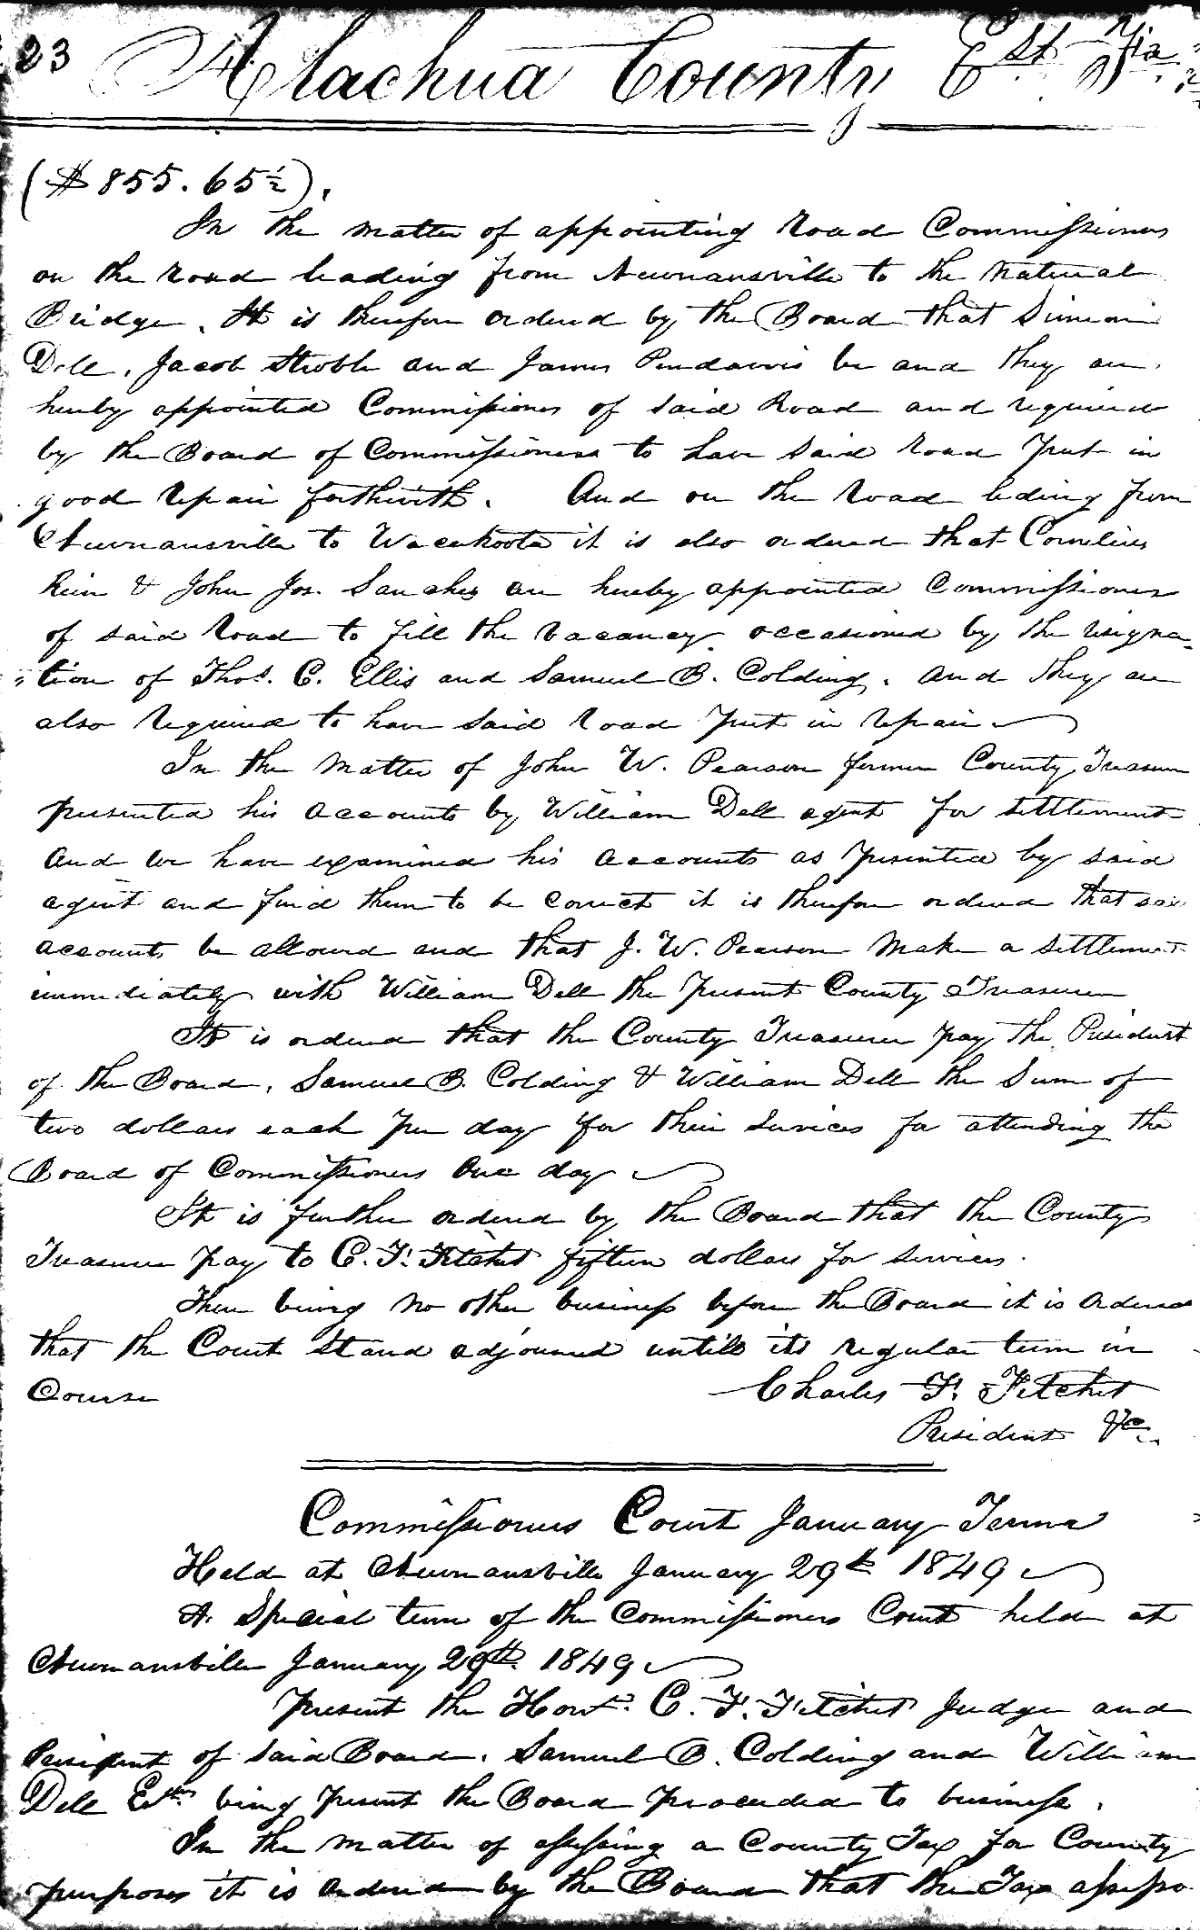 23 Alachua County Est Fla
($855.65½).
In the matter of appointing Road Commissioners
on the road leading from Newnansville to the Natural
Bridge. It is therefore ordered by the Board that Simeon
Dell, Jacob Stroble and James Pendarvis be and they are
hereby appointed Commissioners of said Road and required
by the Board of Commissioners to have said road put in
good repair forthwith. And on the road leding from
Newnansville to Wacahoota it is also ordered that Cornelius
Rain & John Jos. Sanchez are hereby appointed Commissioners
of said road to fill the vacancy occasioned by the resigna-
"tion of Thos. C. Ellis and Samuel B. Colding. And they are
also required to have said road put in repair
In the matter of John W. Pearson former County Treasurer
presented his accounts by William Dell agent for settlement
And we have examined his accounts as presented by said
agent and find them to be correct it is therefore ordered that said
accounts be allowed and that J. W. Pearson make a settlement
immediately with William Dell the present County Treasurer
It is ordered that the County Treasurer pay the President
of the Board, Samuel B. Colding & William Dell the sum of
two dollars each per day for their services for attending the
Board of Commissioners one day
It is further ordered by the Board that the County
Treasurer pay to C. F. Fitchet fifteen dollars for services.
There being no other business before the Board it is ordered
that the Court stand adjourned untill its regular term in
Course Charles F. Fitchet
President &c.
Commissioners Court January Term
Held at Newnansville January 29th 1849
A Special term of the Commissioners Court held at
Newnansville January 29th 1849
Present the Honl. C. F. Fitchet Judge and
President of said Board. Samuel B. Colding and William
Dell being present the Board proceeded to business.
In the matter of assessing a County Tax for County
purposes it is ordered by the Board that the Tax assesso